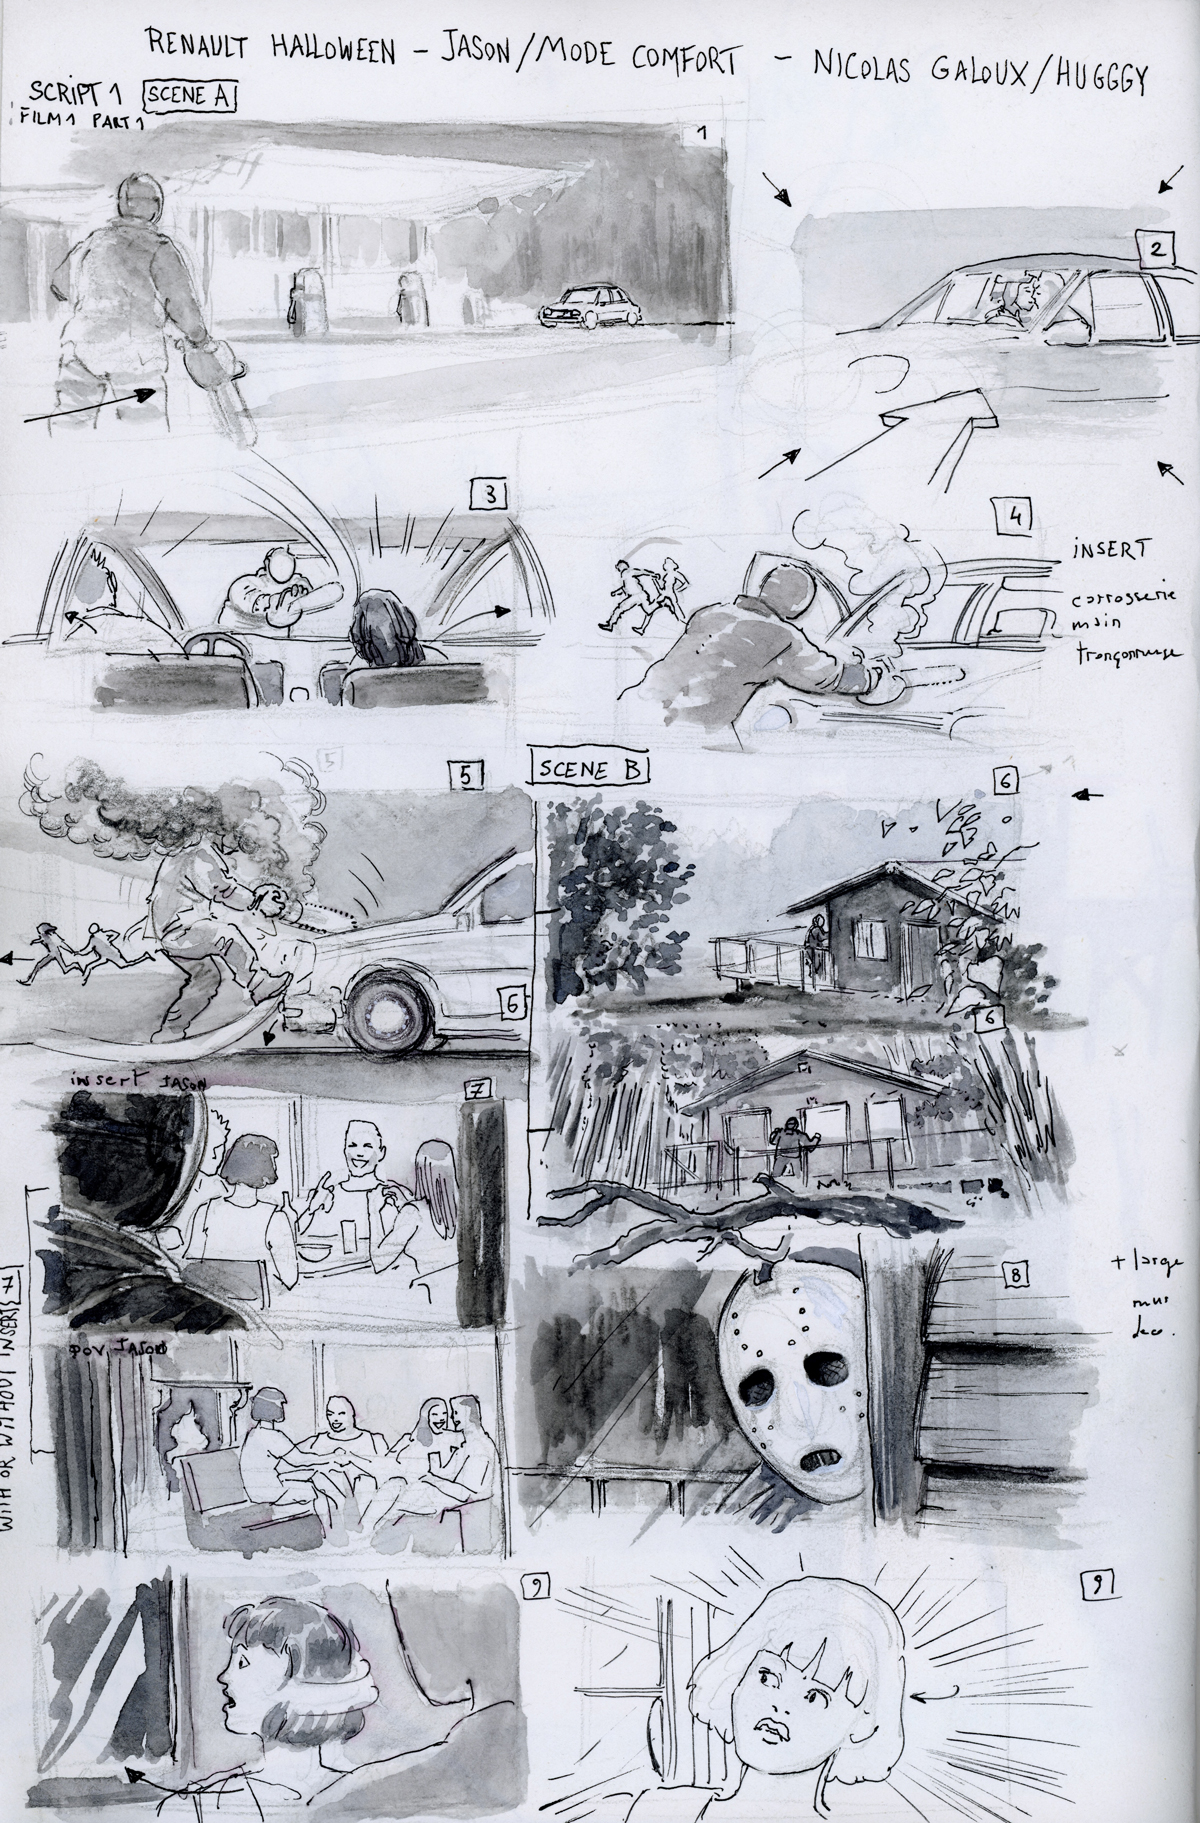 RENAULT HALLOWEEN – JASON/MODE COMFORT – NICOLAS GALOUX/HUGGGY
SCRIPT 1 SCENE A
FILM 1 PART 1
1
2
3
4
INSERT
carrosserie
main
tronçonneuse
5
5
SCENE B
6
6
6
insert JASON
7
POV JASON
WITH OR WITHOUT INSERTS 7
8
+ large
mur
deco.
9
9